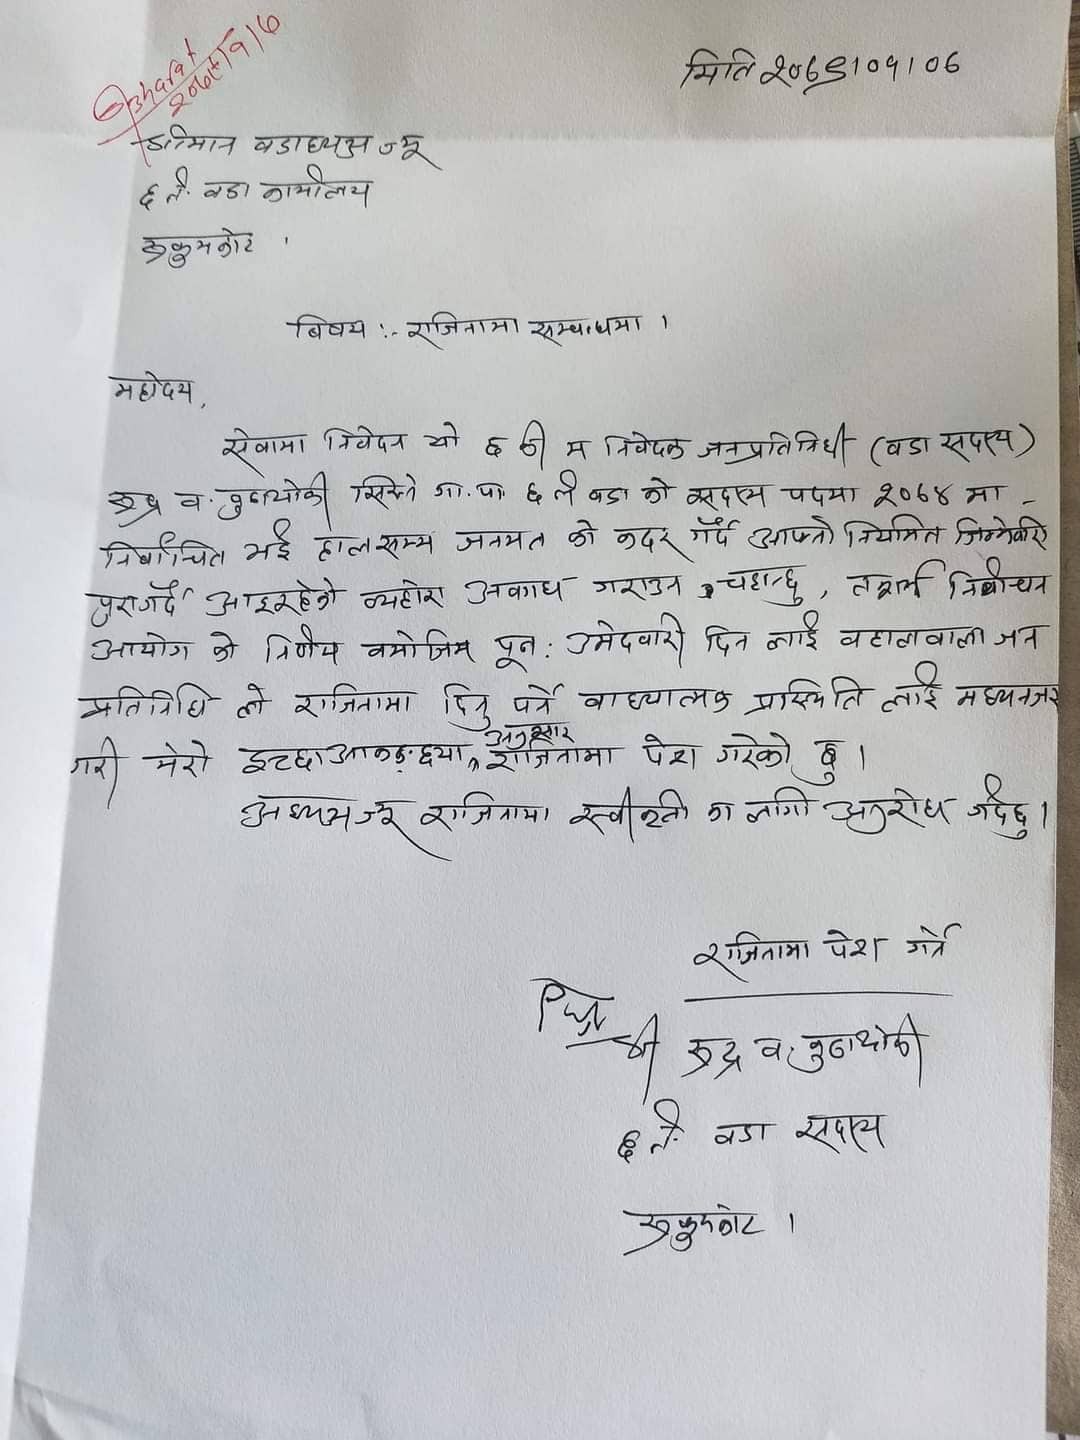 Bharat
मिति २०७९।०१।०७
श्रीमान वडाध्यक्ष ज्यू
६ नं. वडा कार्यालय
रुकुमकोट ।
बिषय :- राजिनामा सम्बन्धमा ।
महोदय,
सेवामा निवेदन यो छ की म निवेदक जनप्रतिनिधी (वडा सदस्य)
रुद्र व. वुढाथोकी सिस्ने गा.पा. ६ नं वडा को सदस्य पदमा २०७४ मा
निर्वाचित भई हालसम्म जनमत को कदर गर्दै आफ्नो नियमित जिम्मेवारी
पुरागर्दै आइरहेको व्यहोरा अवगत गराउन चहान्छु, तसर्थ निर्वाचन
आयोग को निर्णय वमोजिम पून: उमेदवारी दिन लाई वहालवाला जन
प्रतिनिधि ले राजिनामा दिनु पर्ने वाध्यात्मक प्रस्थिति लाई मध्यनजर
गरी मेरो इच्छाआकाङ्छ्या अनुसार राजिनामा पेश गरेको छु ।
अध्यक्षज्यू राजिनामा स्वीकृती का लागी अनुरोध गर्दछु ।
राजिनामा पेश गर्ने
श्री रुद्र व. वुढाथोकी
६ नं. वडा सदस्य
रुकुमकोट ।